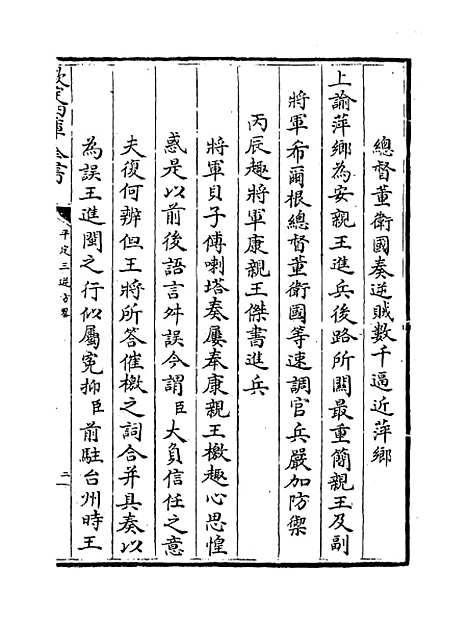 總督董衛國奏逆賊數千逼近萍鄉
上諭萍鄉為安親王進兵後路所關最重簡親王及副
將軍布爾根總督董衛國等速調官兵嚴加防禦
丙辰趣將軍康親王傑書進兵
將軍貝子傅喇塔奏屢奉康親王檄趣心思惶
惑是以前後語言舛誤今謂臣大負信任之意
夫復何辨但王將所答催檄之詞合并具奏以
為誤王進閩之行似屬冤抑臣前駐台州時王
欽定四庫全書
平定三逆方畧
二